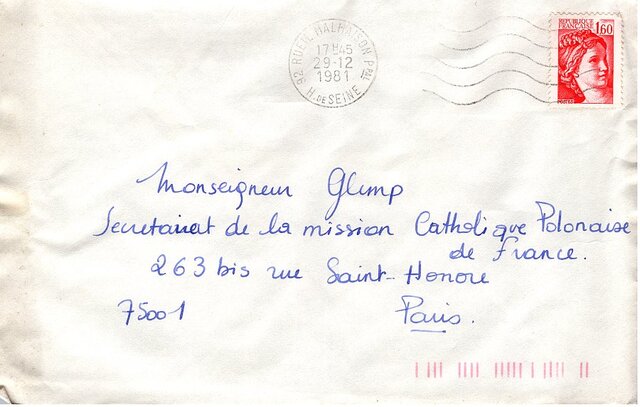 92 RUEIL MALMAISON PPAL
17H45
29-12
1981
H. DE SEINE
REPUBLIQUE
FRANÇAISE
1,60
POSTES
Monseigneur Glimp
Secretariat de la mission Catholique Polonaise
de France.
263 bis rue Saint-Honore
75001 Paris.